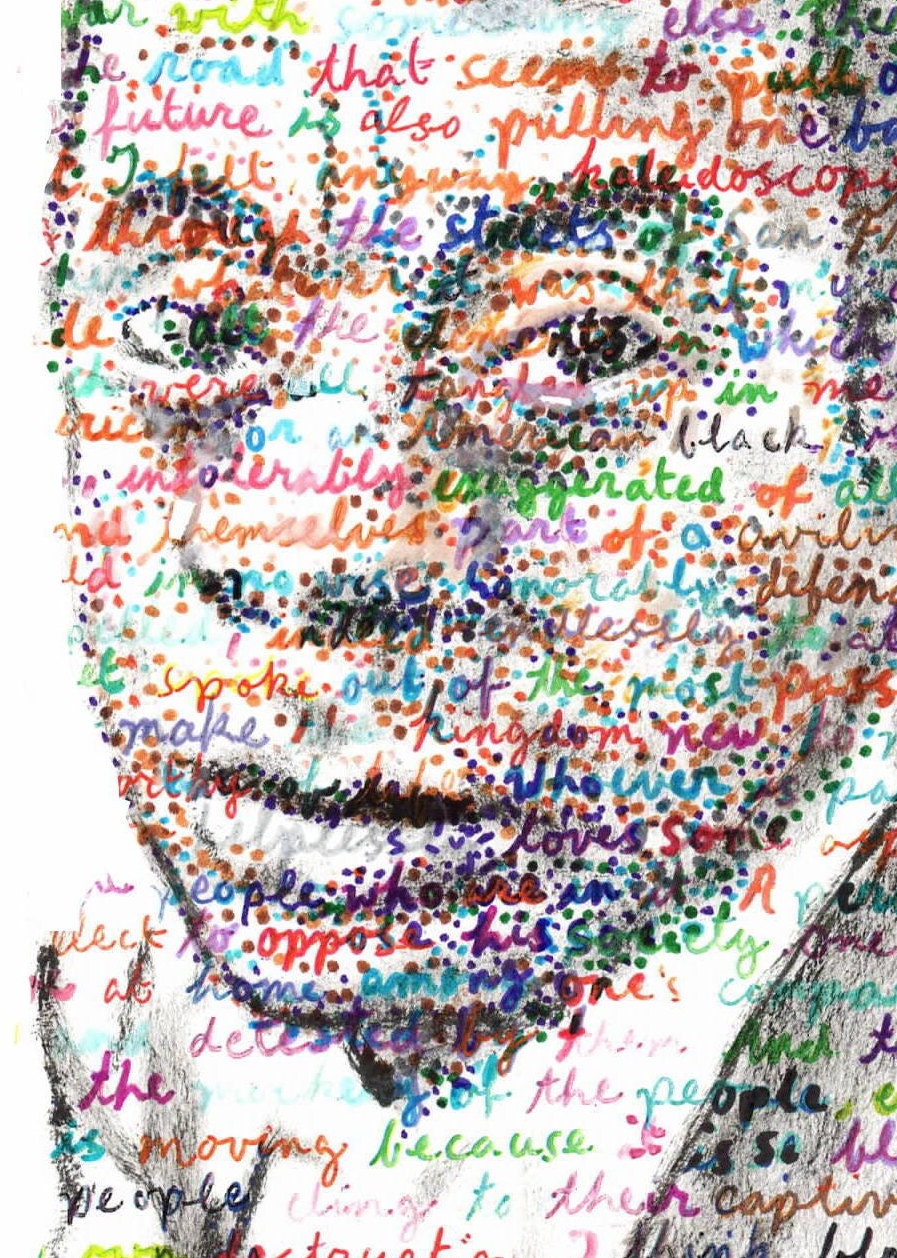 with something else the
he road that seems to pull
future is also pulling one ba
I felt anyway, kaleidoscopi
through the streets of San F
whatever it was that
all the elements in which
were all tangled up in me
or an American black
, intolerably exaggerated of all
nd themselves part of a civiliz
ld in no wise honorably defen
, indeed endlessly to at
et spoke out of the most pass
make the kingdom new to
rthy of life Whoever is pa
loves some
people who are in it A per
elect to oppose his society one
at home among one's compa
and detested by them And t
the mockery of the people, e
is moving because it is so bl
people cling to their captiv
own destruction I think bl